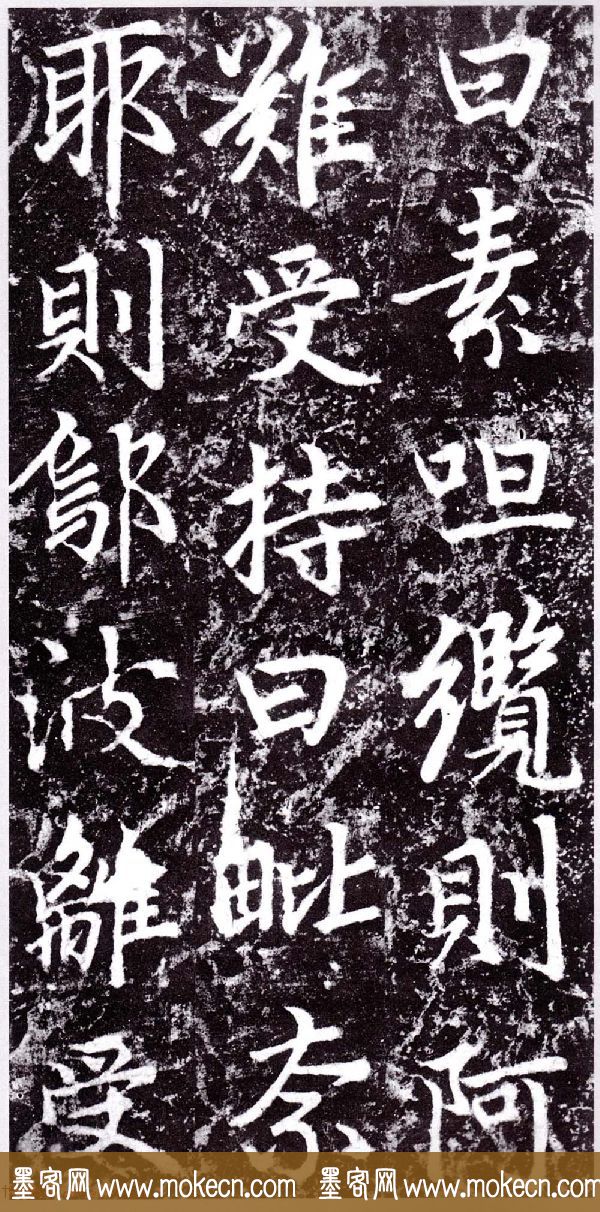 曰素呾纜則阿
難受持曰毗奈
耶則鄔波離受
墨客网 www.mokecn.com 墨客网 www.mokecn.com